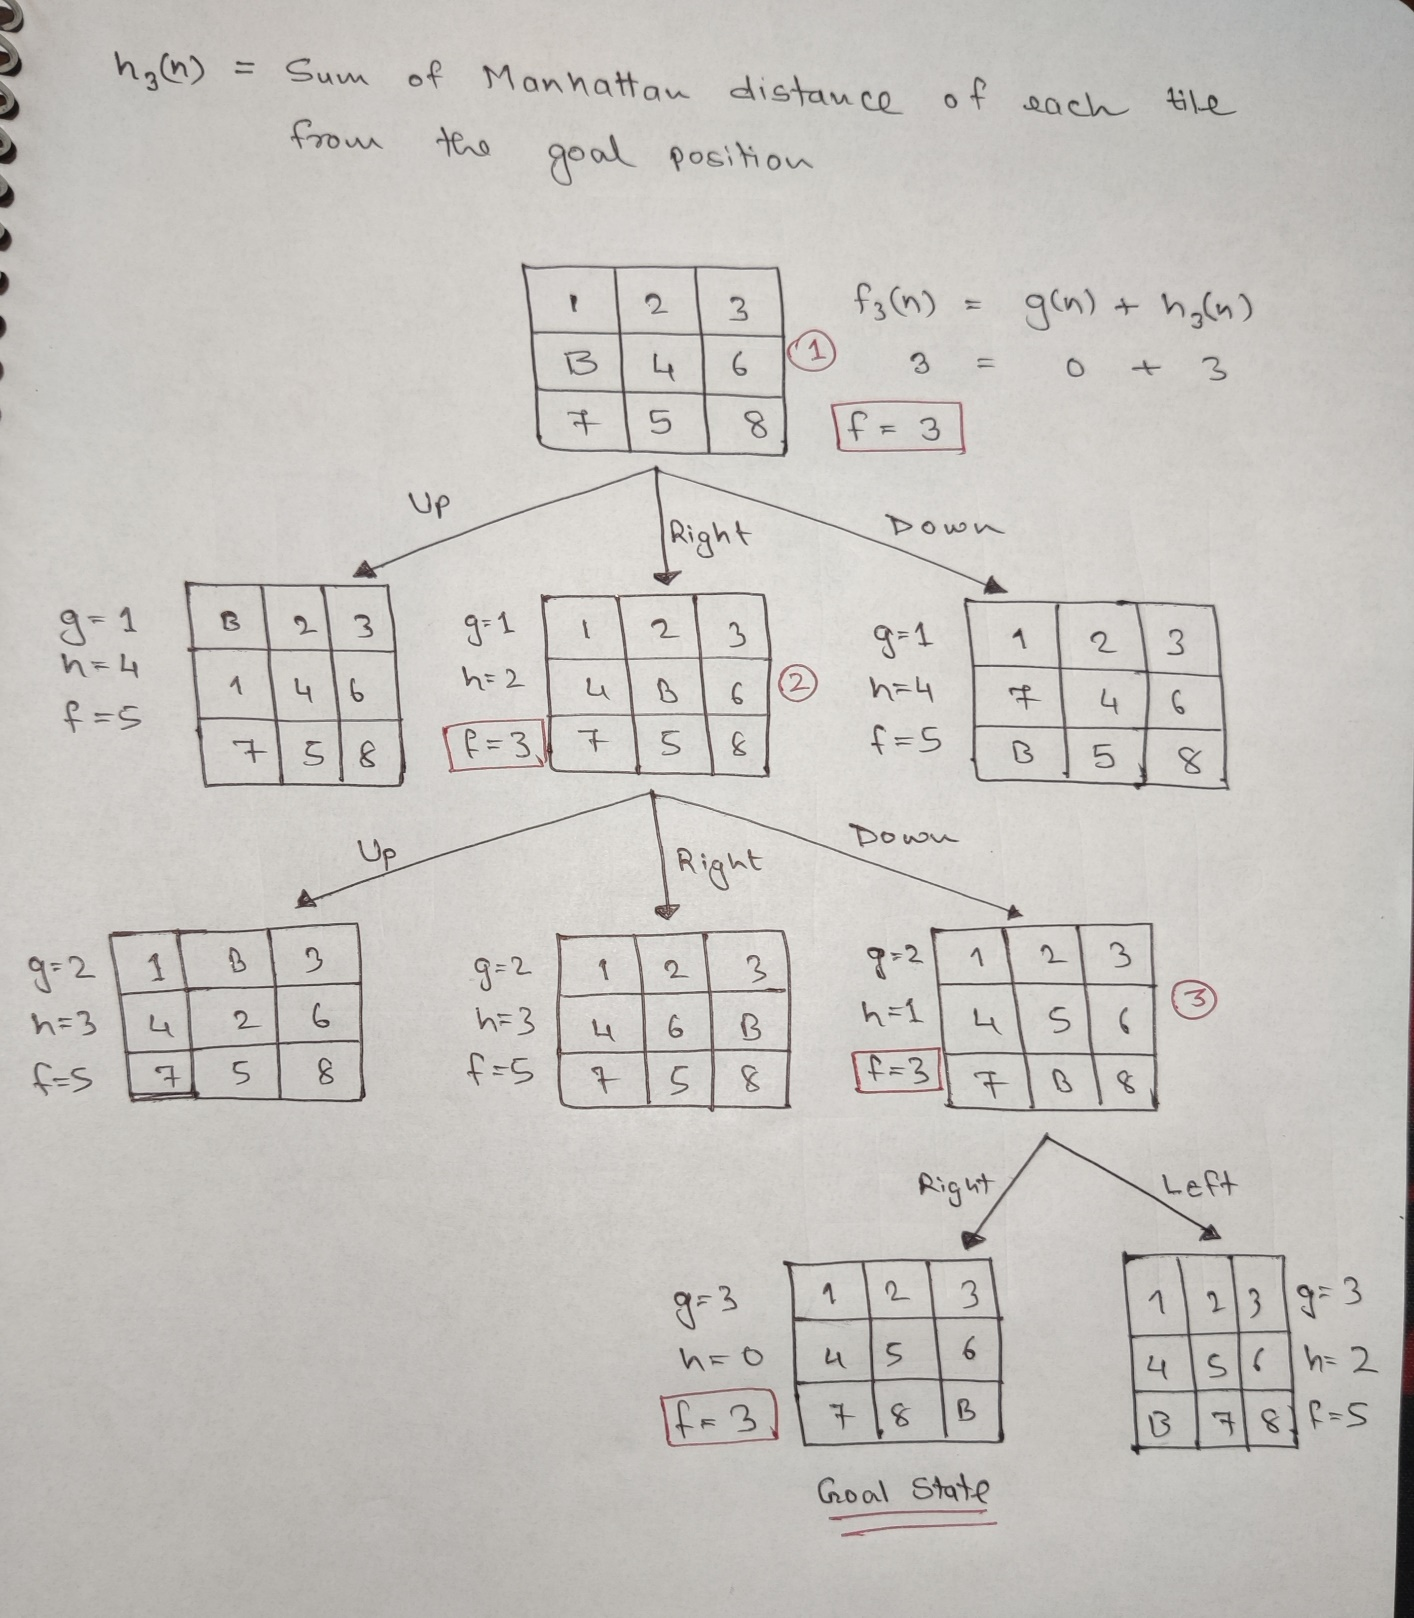 h₃(n) = Sum of Manhattan distance of each tile
from the goal position
1 2 3
B 4 6
7 5 8
1
f₃(n) = g(n) + h₃(n)
3 = 0 + 3
f = 3
Up
Right
Down
g=1
h=4
f=5
B 2 3
1 4 6
7 5 8
g=1
h=2
f=3
1 2 3
4 B 6
7 5 8
2
g=1
h=4
f=5
1 2 3
7 4 6
B 5 8
Up
Right
Down
g=2
h=3
f=5
1 B 3
4 2 6
7 5 8
g=2
h=3
f=5
1 2 3
4 6 B
7 5 8
g=2
h=1
f=3
1 2 3
4 5 6
7 B 8
3
Right
Left
g=3
h=0
f=3
1 2 3
4 5 6
7 8 B
Goal State
1 2 3
4 5 6
B 7 8
g=3
h=2
f=5